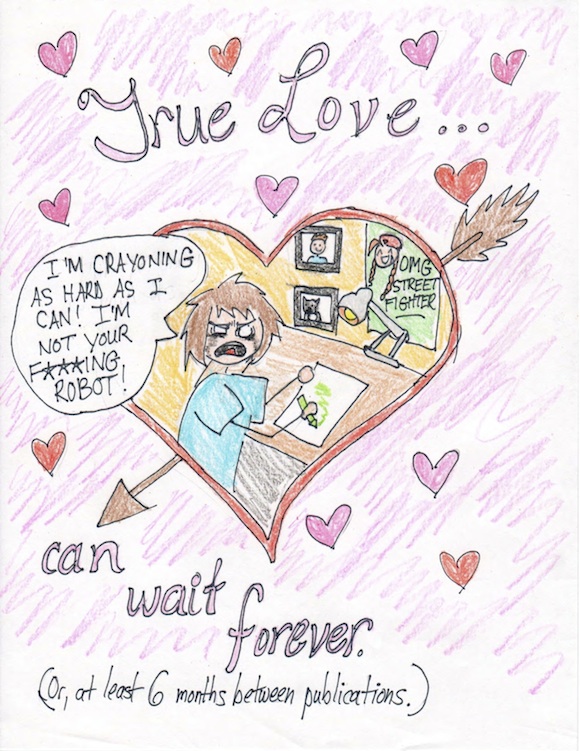 True Love...
I'M CRAYONING
AS HARD AS I
CAN! I'M
NOT YOUR
F***ING
ROBOT!
OMG
STREET
FIGHTER
can
wait
forever.
(Or, at least 6 months between publications.)